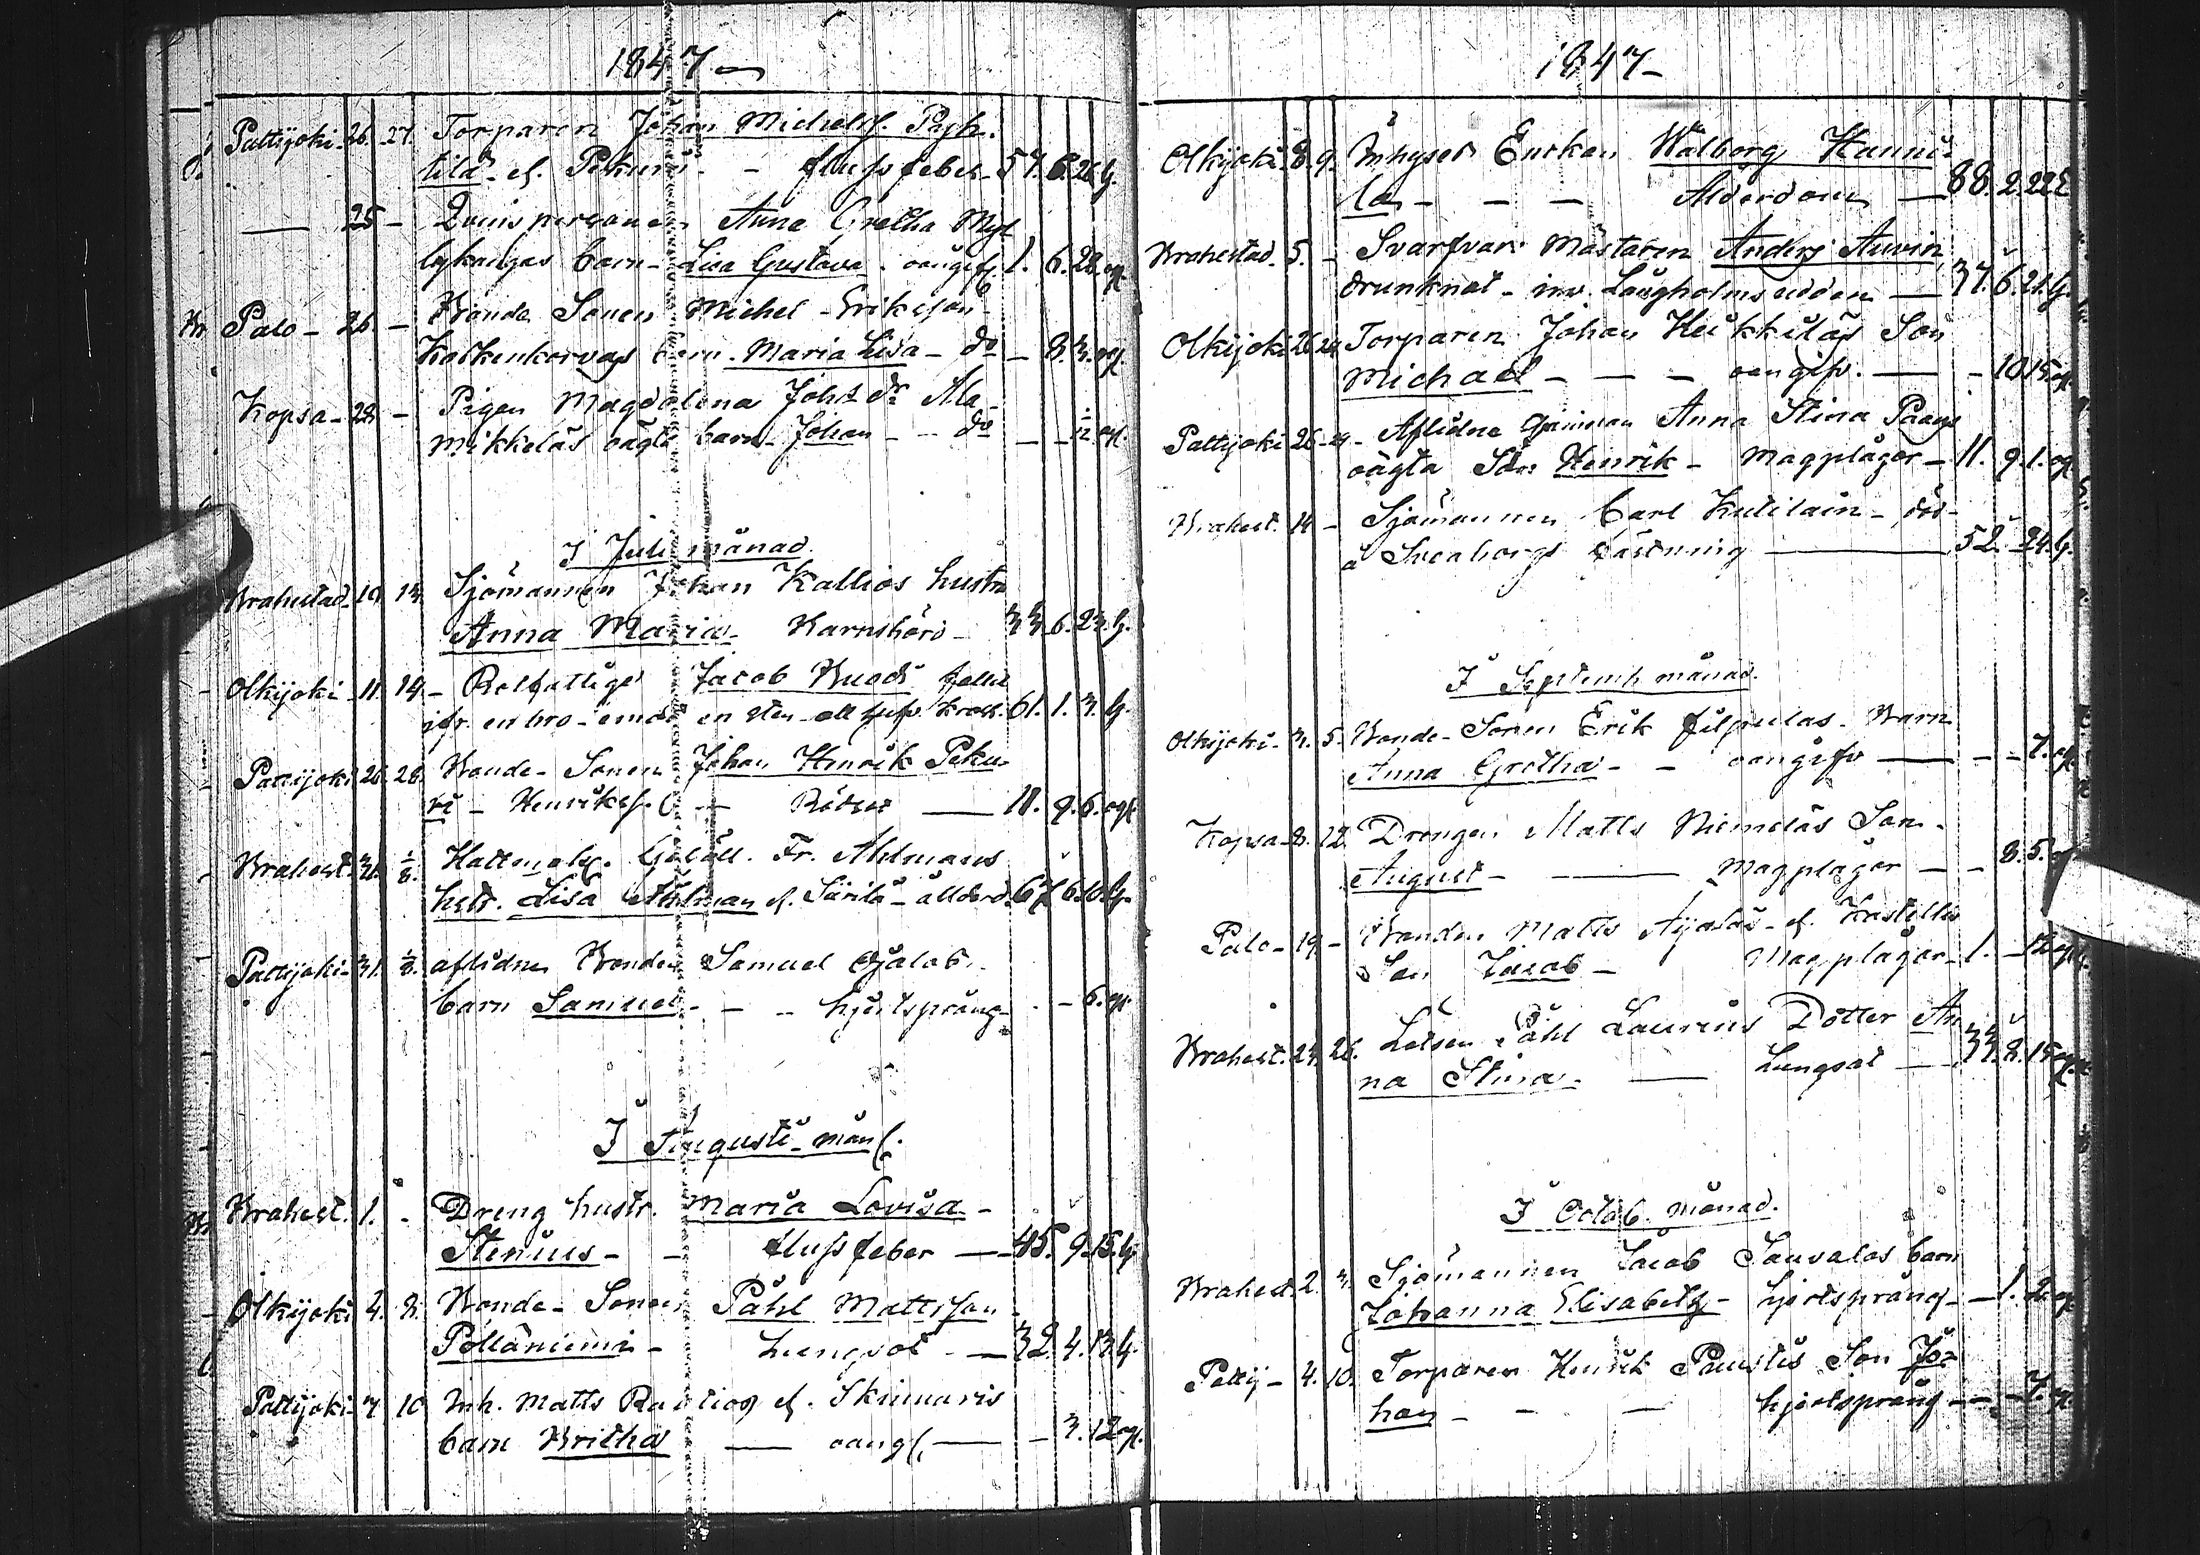 1847
Pattijoki 26. 27. Torparen Johan Michelss. Pajh.
tila ef. Pekuri - flussfeber 57. 8. 26 G.
25 - Qvinspersonen Anna Gretha Myl
lykangas barn Lisa Gustava oangifv. 1. 6. 28 og.
Palo - 26 - Bonde Sonen Michel Eriksson
Koskenkorvas barn Maria Lisa - do - 8. 3. og.
Kopsa - 28 - Pigan Magdalena Johs dr Ala
mikkeläs oägta barn Johan - do - - ½ og.
I Julii månad
Brahestad 10. 13. Sjömannen Johan Kallios hustru
Anna Maria - Barnsbörd - 33. 6. 23. G.
Olkijoki 11. 14. - Rotfattige Jacob Buodi fallit
ifr. en bro en sten 61. 1. 3. G.
Pattijoki 26. 28. Bonde Sonen Johan Henrik Peku
ri - Henrikss. - Rödsot - 11. 9. 6. og.
Brahest. 31. 1/8. Hattmak. Gesäll. Fr. Ahlmans
hstr. Lisa Ahlman ef. Särilä - ålderd. 67. 6. 10. G.
Pattijoki 31. 1/8. aflidne Bonden Samuel Ojalas
barn Samuel - - hjertsprång - - 6. og.
I Augusti mån.
Brahest. 1. - Dreng hustr. Maria Lovisa
Stenius - - flussfeber - 45. 9. 15. G.
Olkijoki 4. 8. Bonde Sonen Påhl Mattsson
Pölläniemi - Lungsot - 32. 4. 13. G.
Pattijoki 7 10 Inh. Matts Rautios ef. Skinnaris
barn Britha - oangf. - - 3. 12 og.
1847
Olkijoki 8. 9. Inhyses Enkan Walborg Hanni
la - - - Ålderdom - 88. 2. 22 E.
Brahestad 5. - Svarfvar Mästaren Anders Auvin
drunknat - inv. Långholmsudden - 37. 6. 21. G.
Olkijoki 26 29 Torparen Johan Heikkiläs Son
Michael - - - oangifv. - - 10. 15. og.
Pattijoki 26 29 - Aflidne qvinnan Anna Stina Paays
oägta Son Henrik - Magplågor - 11. 9. 1. og.
Brahest. 14 - Sjömannen Carl Kutilain - död
å Sveaborgs Fästning - 52. - 24. G.
I Septemb. månad.
Olkijoki 3. 5. Bonde Sonen Erik Filpulas Barn
Anna Gretha - - oangifv - - - 7. og.
Kopsa 8. 12. Drengen Matts Niemeläs Son
August - - Magplågor - - 8. 5. og.
Palo - 19. - Bonden Matts Ajalas - ef. Kastelli
Son Jacob - Magplågor - 1. - 12 og.
Brahest. 24. 26. Lotsen Påhl Laurins Dotter An
na Stina - Lungsot - 33. 8. 15 og.
I Octob. månad.
Brahest. 2. 3. Sjömannen Jacob Sauvalas barn
Johanna Elisabeth - hjertsprång - 1. 2. og.
Pattij - 4. 10. Torparen Henrik Paustis Son Jo
han - - - hjertsprång - - 7. og.